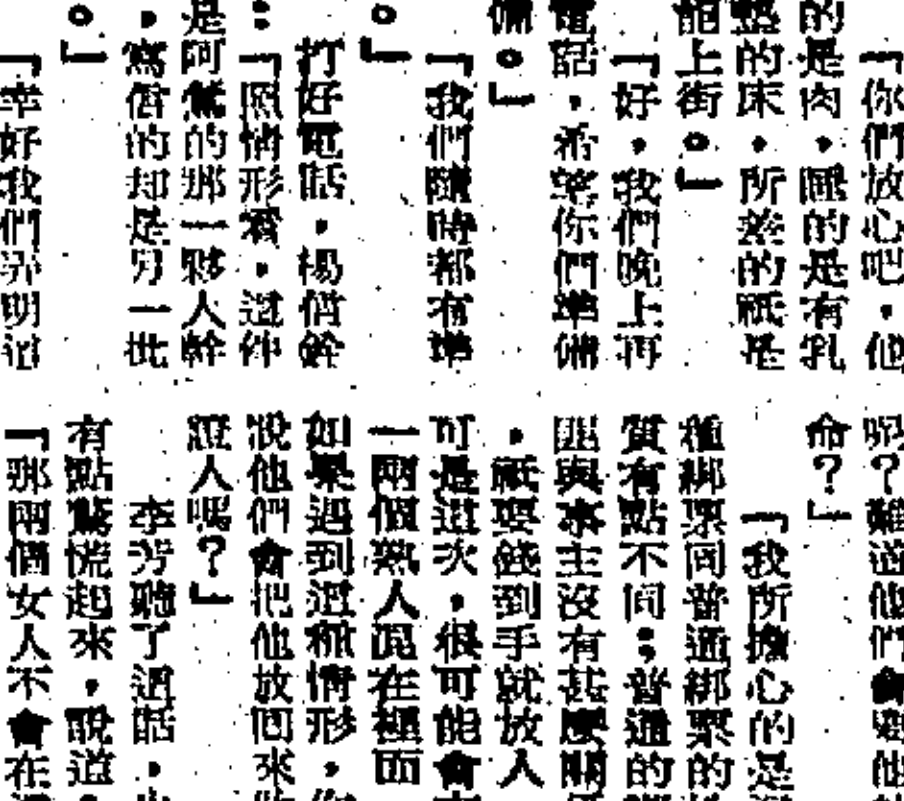 「你們放心吧，他
的是肉，睡的是有乳
墊的床，所差的祇是
能上街。」
「好，我們晚上再
電話，希望你們準備
備。」
「我們隨時都有準
。」
打好電話，楊俏幹
：「照情形看，這件
是阿鶯的那一夥人幹
，寫信的却是另一批
。」
「幸好我們弄明這
呢？難道他們會要他
命？」
「我所擔心的是
種綁票同普通綁票的
質有點不同；普通的
匪與事主沒有甚麼關
，祇要錢到手就放人
可是這次，很可能會有
一兩個熟人混在裡面
如果遇到這種情形，你
說他們會把他放回來做
證人嗎？」
李芳聽了這話，也
有點驚慌起來，說道：
「那兩個女人不會在